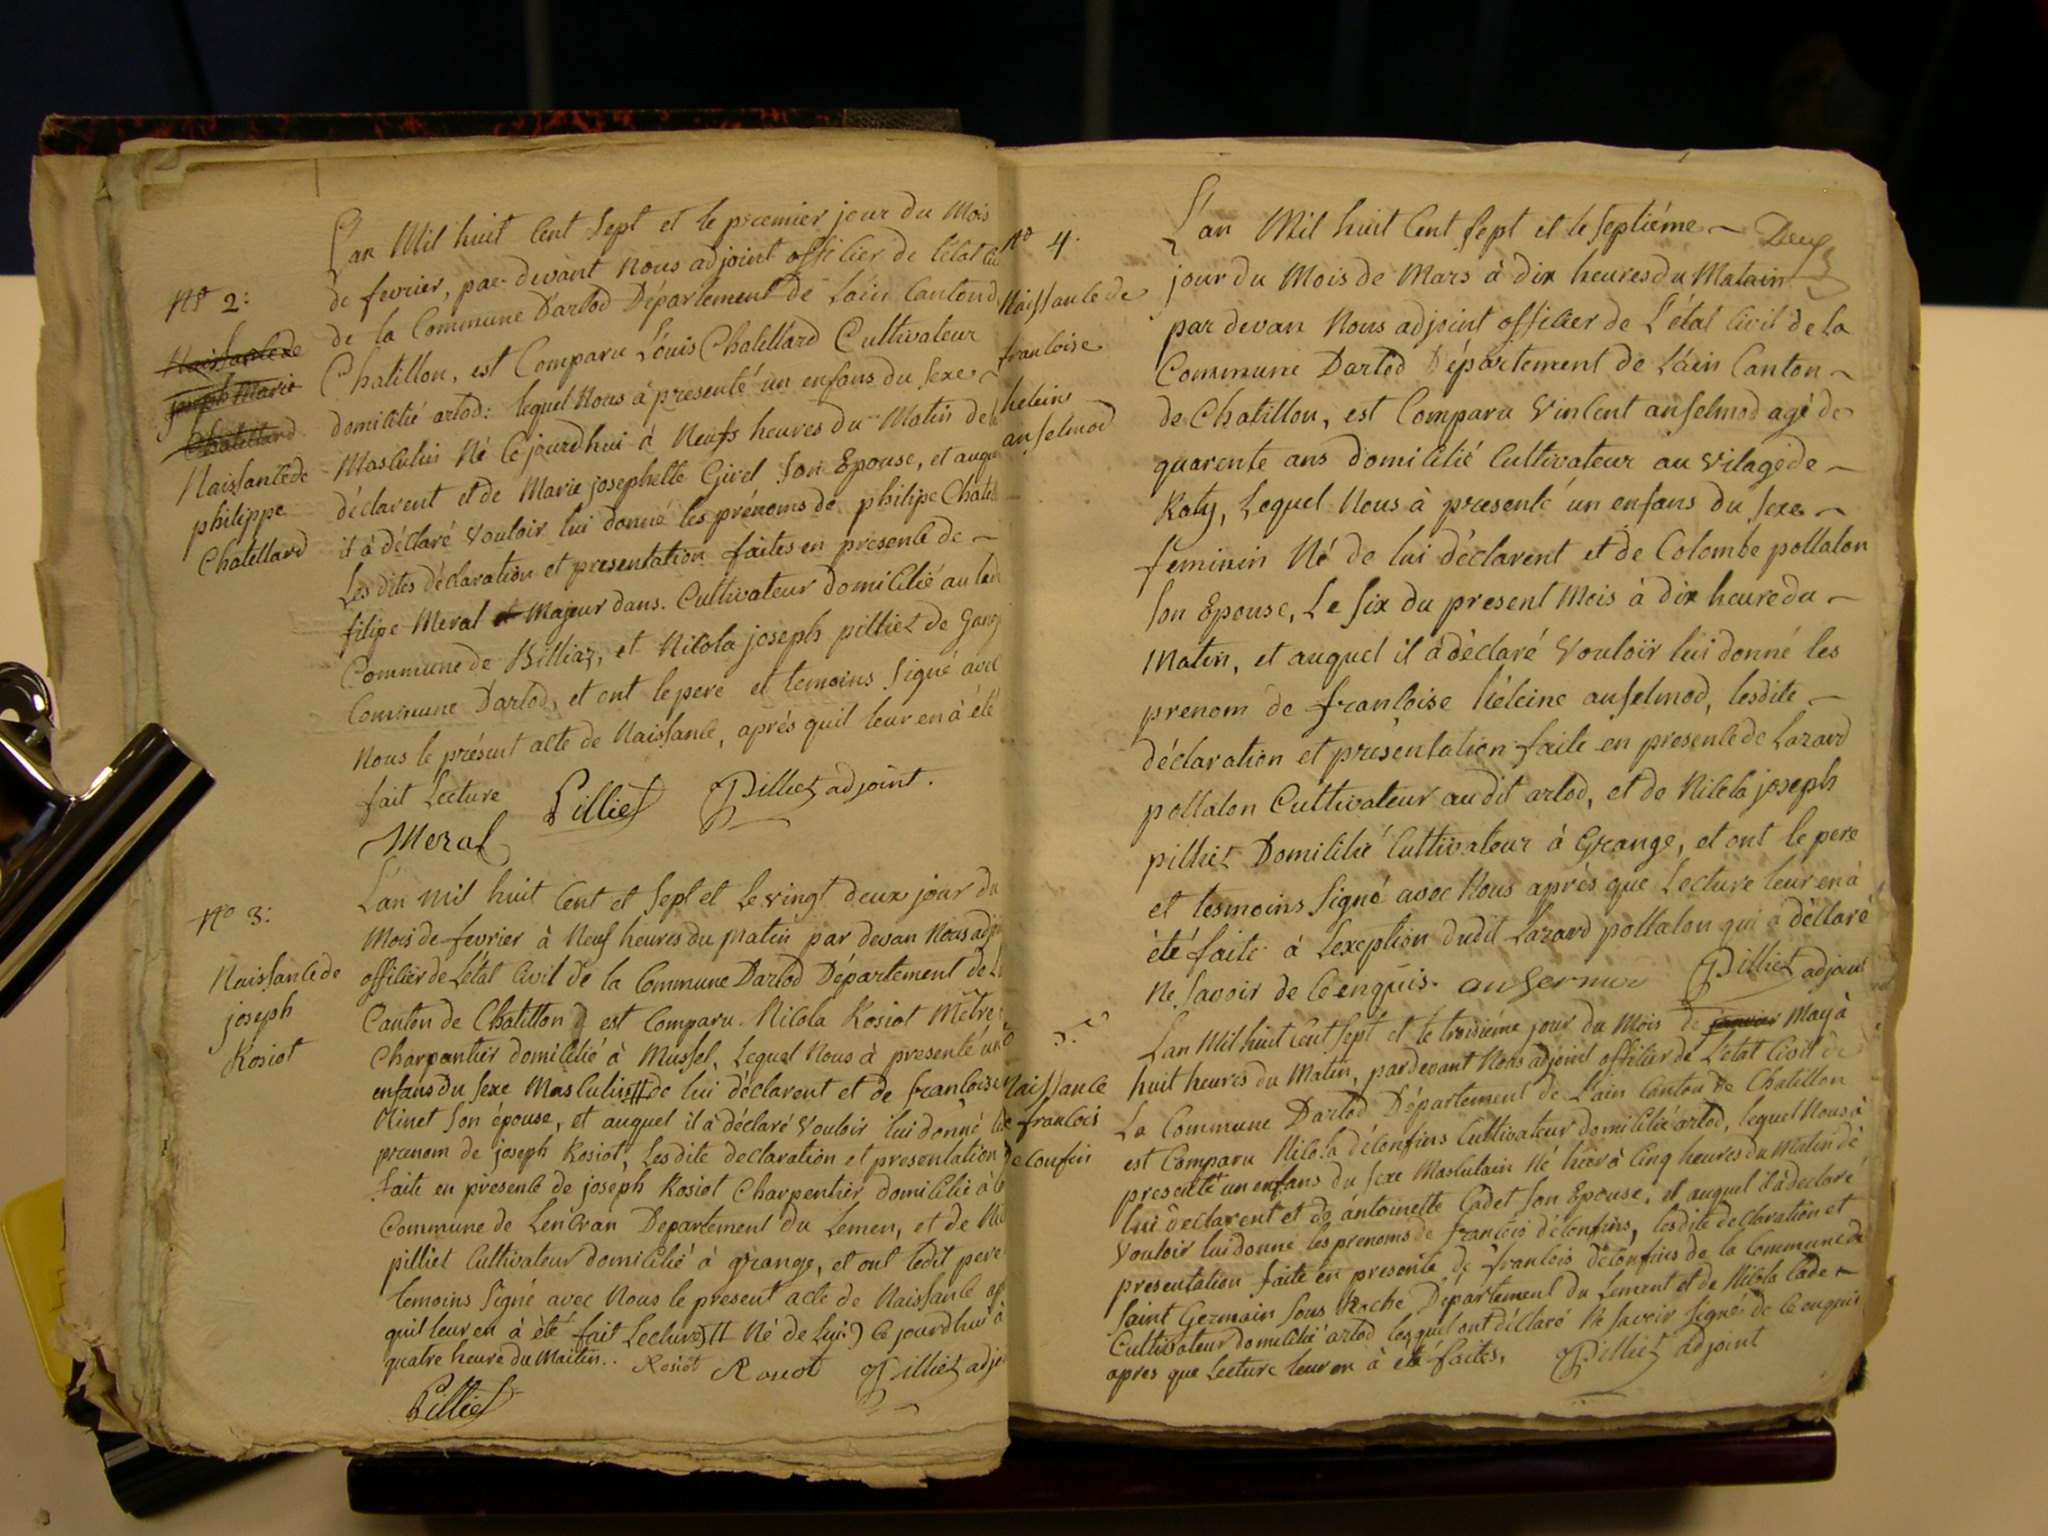 L'an Mil huit Cent Sept et le premier jour du Mois
de fevrier, par-devant Nous adjoint officier de l'état
de la Commune D'arlod Département de L'ain Canton
Chatillon, est Comparu Louis Chatellard Cultivateur
domicilié arlod: lequel Nous à presenté un enfans du Sexe
Masculin Né Cejourdhui à Neufs heures du Matin de
déclarent et de Marie josephette Givel Son Epouse, et
il à déclaré Vouloir lui donné les prénoms de philipe
Les dites déclaration et presentation faites en presence de
filipe Meral Majeur dans. Cultivateur domicilié au
Commune de Billiaz, et Nicola joseph pilliet de
Commune Darlod, et ont le pere et temoins Signé avec
Nous le présent acte de Naissance, après quil leur en à été
fait Lecture
Meral Pilliet Pilliet adjoint.
N° 2:
Naissance de
joseph Marie
Chatellard
Naissance de
philippe
Chatellard
L'an Mil huit Cent et Sept et Le vingt deux jour du
Mois de fevrier à Neuf heures du Matin par devan Nous
officier de L'état Civil de la Commune Darlod Département de
Canton de Chatillon est Comparu. Nicola Rosiot Metre
Charpantier domicilié à Mussel, Lequel Nous à presenté un
enfans du Sexe Masculin de lui déclarent et de francoise
Minet Son épouse, et auquel il à déclaré Vouloir lui donné
prenom de joseph Rosiot, Lesdite declaration et presentation
faite en presence de joseph Rosiot Charpentier domicilié à
Commune de Lencran Departement du Lemen, et de
pilliet Cultivateur domicilié à grange, et ont ledit pere
temoins Signé avec Nous le present acte de Naissance
quil leur en à été fait Lecture Né de Lui Ce jourdhui à
quatre heure du Maitin.. Rosiot Pilliet
Pilliet
N° 3:
Naissance de
joseph
Rosiot
N° 4.
Naissance de
francoise
heleine
anselmod
L'an Mil huit Cent Sept et le Septiéme
jour du Mois de Mars à dix heures du Matain
par devan Nous adjoint officier de L'état Civil de la
Commune Darlod Département de L'ain Canton
de Chatillon, est Comparu Vincent anselmod agé de
quarente ans domicilié Cultivateur au Vilage de
Katy, Lequel Nous à presenté un enfans du Sexe
feminin Né de lui déclarent et de Colombe pollalon
Son Epouse, Le Six du present Mois à dix heure du
Matin, et auquel il à déclaré Vouloir lui donné les
prenom de francoise héleine anselmod, lesdite
déclaration et présentation faite en presence de Lazard
pollalon Cultivateur au dit arlod, et de Nicola joseph
pilliet Domicilié Cultivateur à Grange, et ont le pere
et tesmoins Signé avec Nous après que Lecture leur en à
été faite à Lexception dudit Lazard pollalon qui à déclaré
Ne Savoir de Ce enquis. Pilliet adjoint
5.
Naissance
de francois
deconfin
L'an Mil huit Cent Sept et le troisiéme jour du Mois de janvier May à
huit heures du Matin, pardevant Nous adjoint officier de L'état Civil de
La Commune Darlod Département de L'ain Canton de Chatillon
est Comparu Nicola déconfins Cultivateur domicilié arlod, lequel Nous à
presenté un enfans du Sexe Masculain Né hier à Cinq heures du Matin de
lui déclarent et de antoinette Cadet Son Epouse, et auquel il à declaré
Vouloir lui donné les prenoms de francois déconfins, lesdite declaration et
presentation faite en presence de francois déconfins de la Commune de
Saint Germain Sous Roche Département du Lement et de Nicola Cade
Cultivateur domicilié arlod lesquel ont déclaré Ne Savoir Signé de Ce enquis
apres que Lecture leur en à été faites. Pilliet adjoint